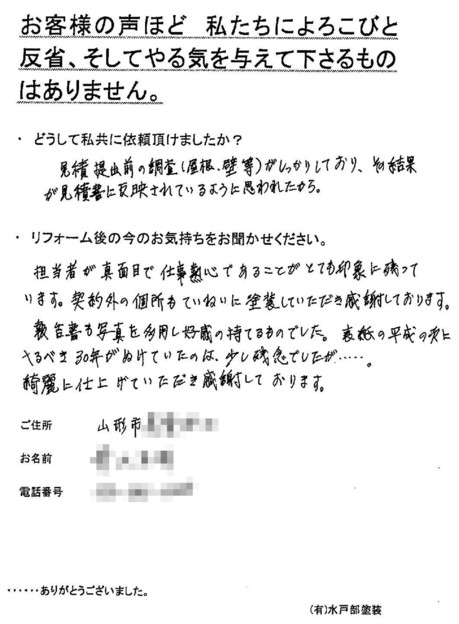 お客様の声ほど 私たちによろこびと
反省、そしてやる気を与えて下さるもの
はありません。
・ どうして私共に依頼頂けましたか?
見積提出前の調査(屋根、壁等)がしっかりしており、その結果
が見積書に反映されているように思われたから。
・ リフォーム後の今のお気持ちをお聞かせください。
担当者が真面目で仕事熱心であることがとても印象に残って
います。契約外の個所もていねいに塗装していただき感謝しております。
報告書も写真を利用し好感の持てるものでした。表紙の平成の次に
くるべき30年がぬけていたのは、少し残念でしたが……。
綺麗に仕上げていただき感謝しております。
ご住所 山形市
お名前
電話番号
……ありがとうございました。
(有)水戸部塗装